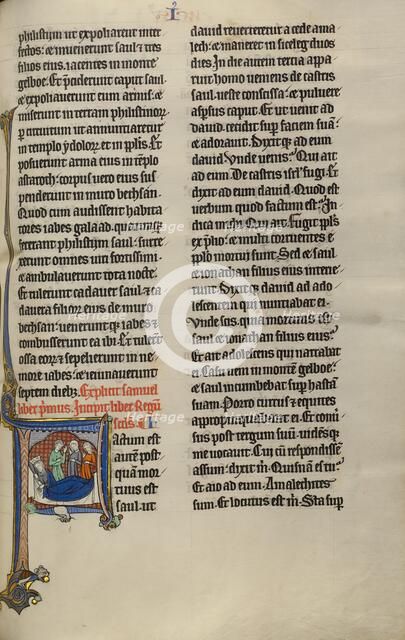 I
philistiim ut expoliarent inter
fectos: et inuenerunt saul et tres
filios eius iacentes in monte
gelboe. Et preciderunt caput saul
et expoliauerunt eum armis: et
miserunt in terram philistinor
per circuitum ut annuntiaretur
in templo ydolor. et in pplis. Et
posuerunt arma eius in templo
astaroth: corpus uero eius sus
penderunt in muro bethsan.
Quod cum audissent habita
tores iabes galaad. quecumque
fecerant philistiim saul: surre
xerunt omnes uiri fortissimi.
et ambulauerunt tota nocte.
Et tulerunt cadauer saul. et ca
dauera filior eius de muro
bethsan: uenerunt que iabes et
combusserunt ea ibi. Et tulerunt
ossa eor et sepelierunt in ne
more iabes: et ieiunauerunt
septem dieb. Explicit samuel
liber primus. Incipit liber Regum
scds.
Factum est
autem post
quam mor
tuus est
saul. ut
dauid reuerteretur a cede ama
lech. et maneret in siceleg duos
dies. In die autem tercia appa
ruit homo ueniens de castris
saul. ueste conscissa. et puluere
aspersus caput. Et ut uenit ad
dauid. cecidit super faciem suam.
et adorauit. Dixit que ad eum
dauid. Unde uenis? Qui ait
ad eum. De castris isrl fugi. Et
dixit ad eum dauid. Quod est
uerbum quod factum est? In
dica mihi. Qui ait. Fugit ppls
ex prelio: et multi corruentes e
pplo mortui sunt. Sed et saul
et ionathan filius eius interie
runt. Dixit que dauid ad ado
lescentem qui nuntiabat ei.
Unde scis. quia mortuus est
saul et ionathan filius eius?
Et ait adolescens qui narrabat
ei. Casu ueni in montem gelboe.
et saul incumbebat super hastam
suam. Porro currus et equites
appropinquabant ei. Et conuer
sus post tergum suum. uidens que
me uocauit. Cui cum respondissem
assum. dixit m. Quisnam es tu?
Et aio ad eum. Amalechites
sum. Et locutus est m. Sta super
Heritage
Heritage
Heritage
Heritage